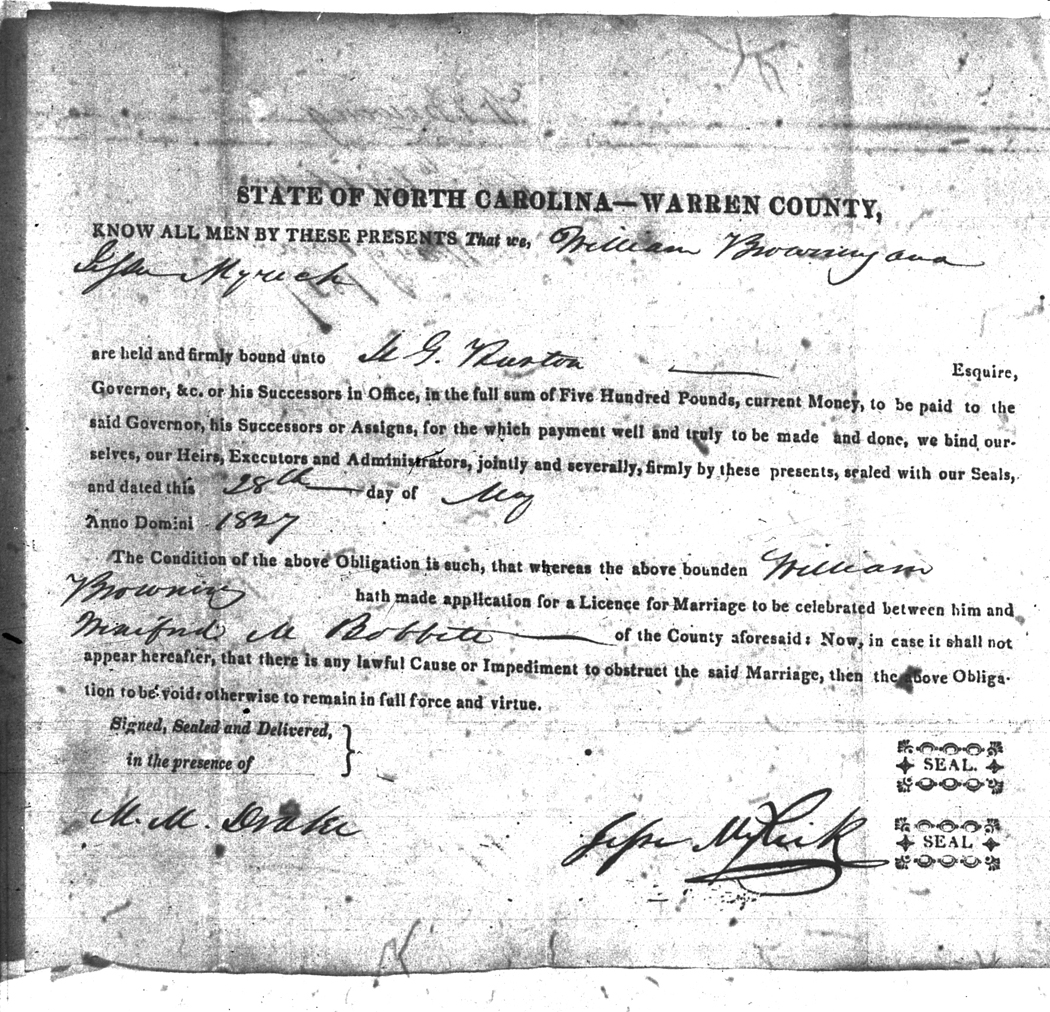 STATE OF NORTH CAROLINA—WARREN COUNTY,
KNOW ALL MEN BY THESE PRESENTS That we, William Browning and
Jesse Myrick
are held and firmly bound unto H G Burton Esquire,
Governor, &c. or his Successors in Office, in the full sum of Five Hundred Pounds, current Money, to be paid to the
said Governor, his Successors or Assigns, for the which payment well and truly to be made and done, we bind our-
selves, our Heirs, Executors and Administrators, jointly and severally, firmly by these presents, sealed with our Seals,
and dated this 28th day of May
Anno Domini 1827
The Condition of the above Obligation is such, that whereas the above bounden William
Browning hath made application for a Licence for Marriage to be celebrated between him and
M Bobbitt of the County aforesaid: Now, in case it shall not
appear hereafter, that there is any lawful Cause or Impediment to obstruct the said Marriage, then the above Obliga-
tion to be void: otherwise to remain in full force and virtue.
Signed, Sealed and Delivered,
in the presence of
SEAL.
M. M. Drake
Jesse Myrick SEAL